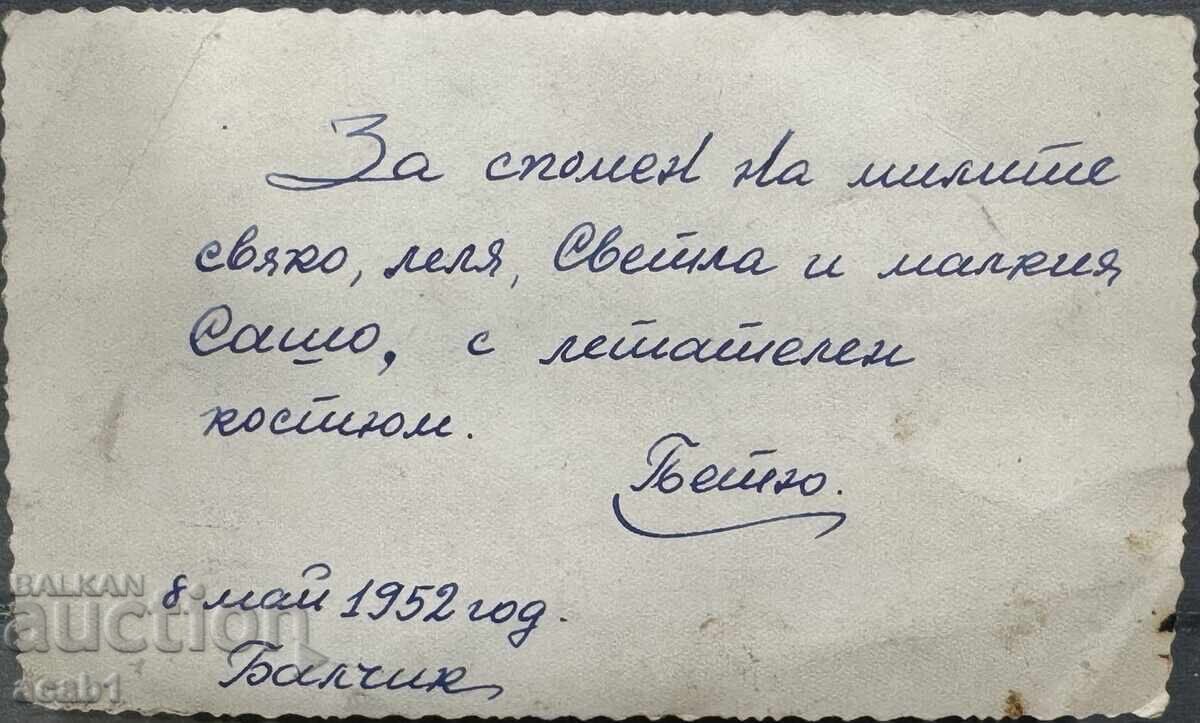 За спомен на милите
свяко, леля, Светла и малкия
Сашо, с летателен
костюм.
Петю.
8. май 1952 год.
Балчик
BALKAN
auction
acab1